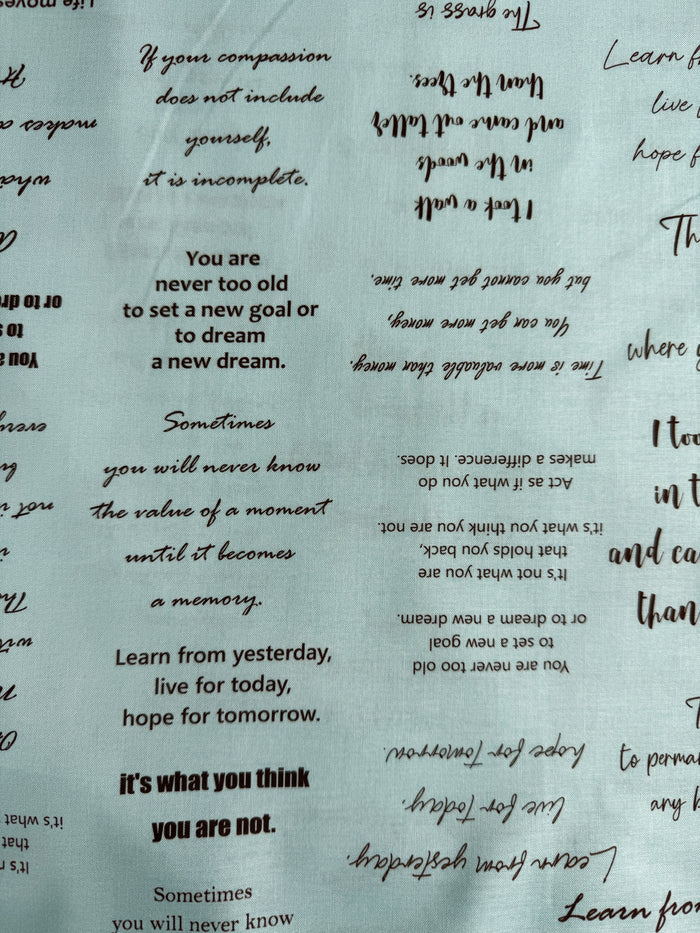 If your compassion
does not include
yourself,
it is incomplete.
You are
never too old
to set a new goal or
to dream
a new dream.
Sometimes
you will never know
the value of a moment
until it becomes
a memory.
Learn from yesterday,
live for today,
hope for tomorrow.
it's what you think
you are not.
Sometimes
you will never know
Learn from yesterday.
live for today.
hope for tomorrow.
You are never too old
to set a new goal
or to dream a new dream.
It's not what you are
that holds you back,
it's what you think you are not.
Act as if what you do
makes a difference. It does.
Time is more valuable than money.
You can get more money,
but you cannot get more time.
I took a walk
in the woods
and came out taller
than the trees.
The grass is
Learn
live
hope
where
I
in
and
than
to
any
Learn
Life moves
makes a
or to
to s
You a
it's what
that
It's